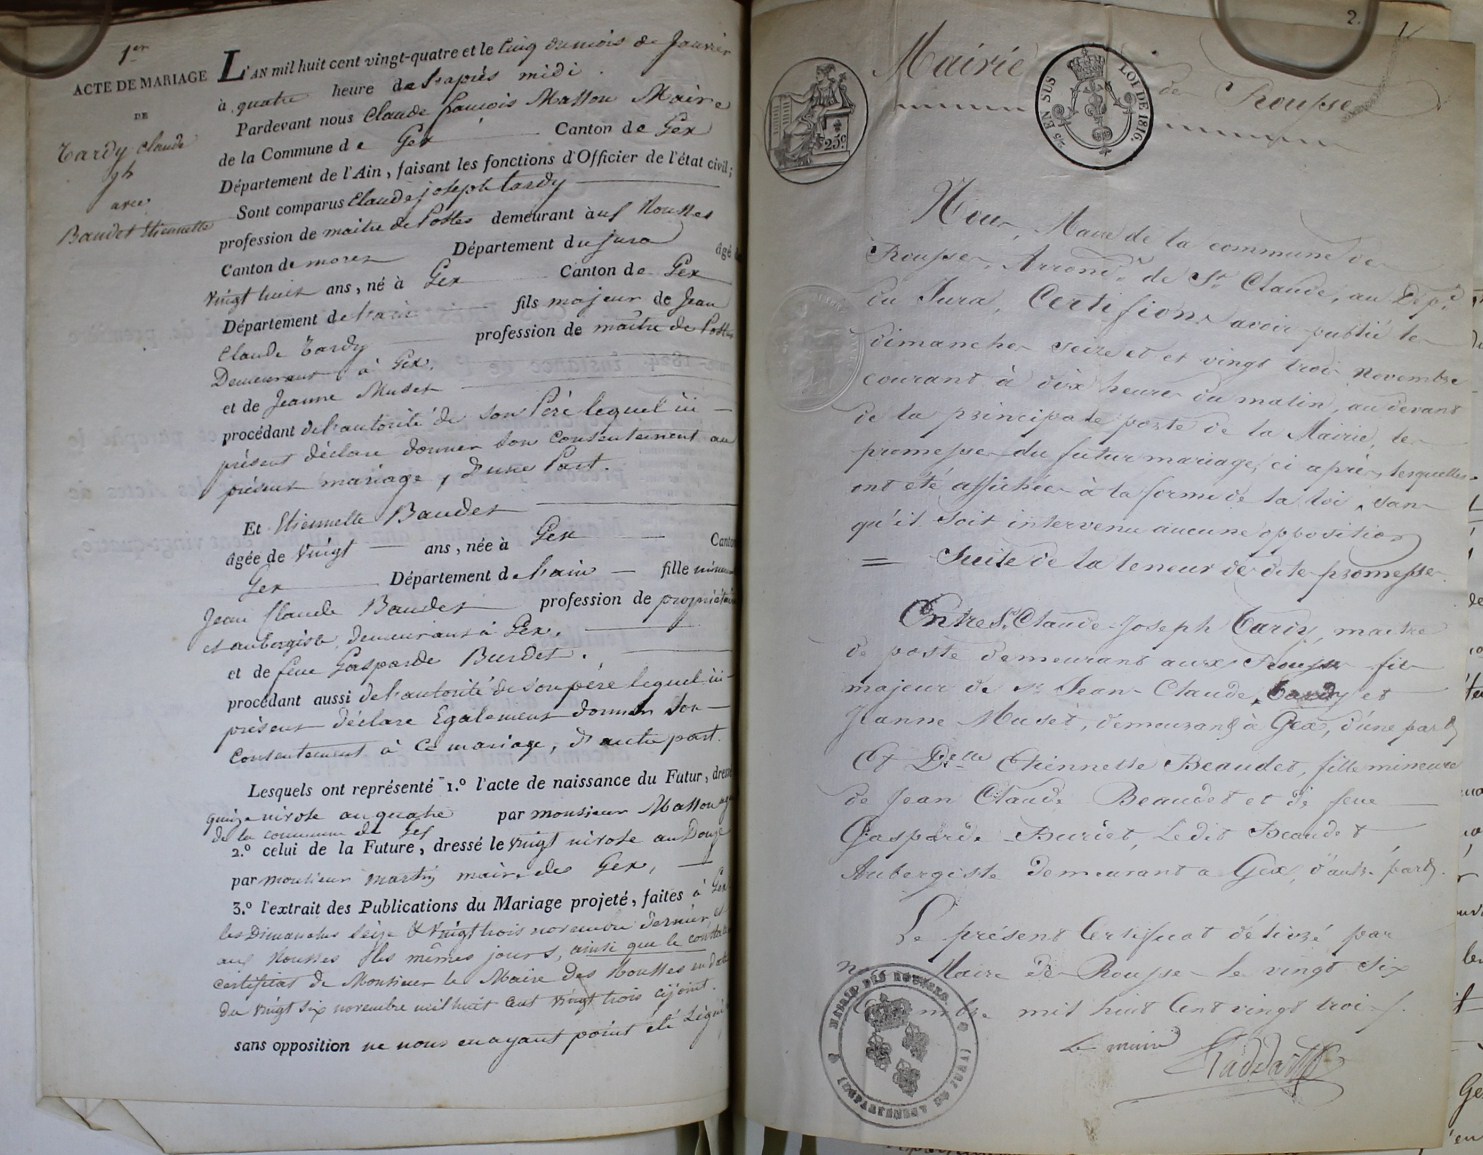 1er
ACTE DE MARIAGE
DE
Tardy Claude
jh
avec
Baudet Etiennette
L'AN mil huit cent vingt-quatre et le cinq du mois de Janvier
à quatre heure de l'après midi.
Pardevant nous Claude françois Masson Maire
de la Commune de Gex Canton de Gex
Département de l'Ain, faisant les fonctions d'Officier de l'état civil;
Sont comparus Claude joseph tardy
profession de maitre de Postes demeurant aux Rousses
Canton de morez Département du jura âgé de
vingt huit ans, né à Gex Canton de Gex
Département de l'ain fils majeur de Jean
Claude Tardy profession de maître de Postes
Demeurant à Gex.
et de Jeanne Muset
procédant de l'autorité de son Père lequel ici
présent déclare donner son consentement au
présent mariage, d'une Part.
Et Etiennette Baudet
âgée de vingt ans, née à Gex Canton
Gex Département de l'ain fille mineure
Jean Claude Baudet profession de propriétaire
et aubergiste demeurant à Gex.
et de feue Gasparde Burdet.
procédant aussi de l'autorité de son père lequel ici
présent déclare Egalement donner son
consentement à ce mariage, d'autre part.
Lesquels ont représenté 1.º l'acte de naissance du Futur, dressé
quinze nivose an quatre par monsieur Masson
de la commune de Gex
2.º celui de la Future, dressé le vingt nivose an Douze
par monsieur martin maire de Gex,
3.º l'extrait des Publications du Mariage projeté, faites à Gex
les Dimanches Seize & vingt trois novembre dernier, et
aux Rousses les mêmes jours, ainsi que le constate
certificat de Monsieur le Maire des Rousses en date
du vingt six novembre mil huit cent vingt trois cijoint.
sans opposition ne nous en ayant point été signi
2.
Mairie de Rousse
25 EN SUS
LOI DE 1816.
25c
Nous, Maire de la commune de
Rousse, Arrond.t de St Claude, au Dép.t
du Jura, Certifions avoir publié le
dimanche seize et et vingt trois novembre
courant à dix heure du matin, au devant
de la principale porte de la Mairie, les
promesse du futur mariage ci après, lesquelles
ont été affichée à la forme de la loi, san
qu'il soit intervenu aucune opposition
= Suite de la teneur de dite promesse
Entre Sr Claude Joseph Tardy, maitre
de poste demeurant aux Rousse fils
majeur de Sr Jean-Claude Tardy et
Jeanne Muset, demeurant à Gex, d'une part,
Et Delle Etiennette Beaudet, fille mineure
de Jean Claude Beaudet et de feue
Gasparde Burdet, Ledit Beaudet
Aubergiste demeurant a Gex, d'autre part.
Le présent Certificat délivré par
Maire de Rousse le vingt six
mbre mil huit Cent vingt trois.
Le maire
MAIRIE DES ROUSSES
(JURA)